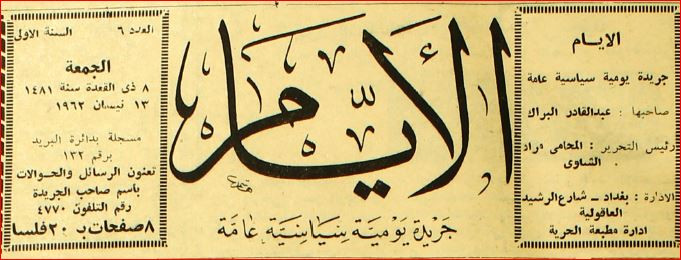 الايام
جريدة يومية سياسية عامة
صاحبها : عبدالقادر البراك
رئيس التحرير : المحامى مراد
الشاوى .
الادارة : بغداد ــ شارع الرشيد
العاقولية
ادارة مطبعة الحرية
الأيّام
جَرِيْدة يَوْميَّة سِيَاسِيَّة عَامَّة
العدد ٦ السنة الاولى
الجمعة
٨ ذى القعدة سنة ١٤٨١
١٣ نيسان ١٩٦٢
مسجلة بدائرة البريد
برقم ١٣٢
تعنون الرسائل والحوالات
باسم صاحب الجريدة
رقم التلفون ٤٧٧٠
٨ صفحات بـ ٢٠ فلسا